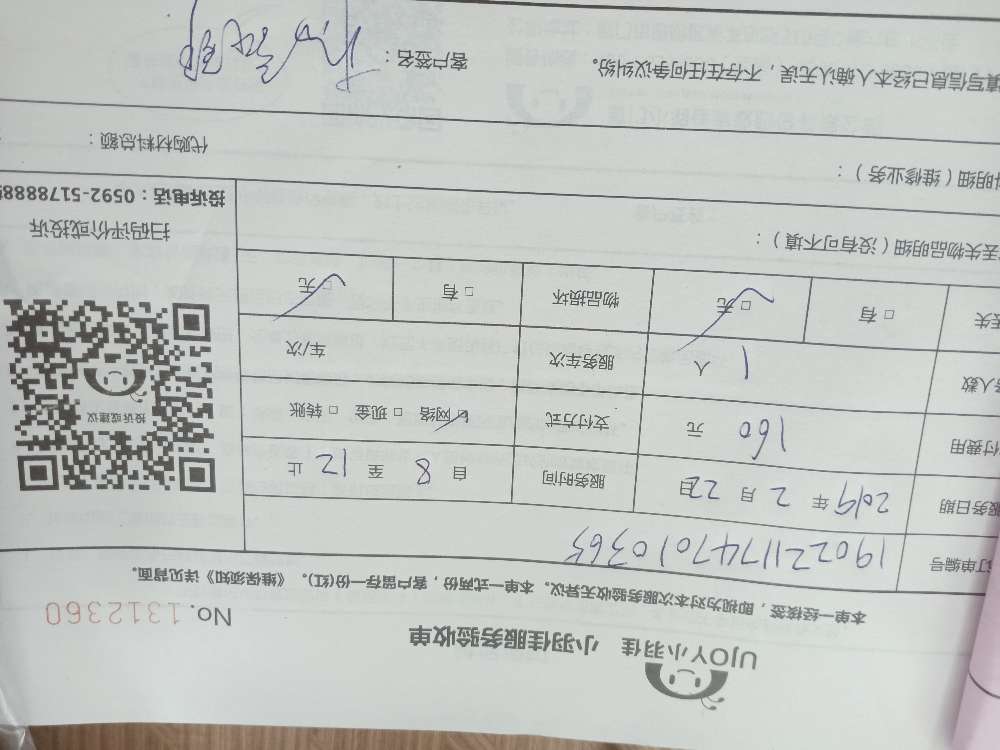 UJOY小羽佳 小羽佳服务验收单
No. 1312360
本单一经核签，即视为对本次服务验收无异议。本单一式两份，客户留存一份(红)。《维保须知》详见背面。
订单编号 190221174701036
服务日期 2019 年 2 月 22 日 服务时间 自 8 至 12 止
付费用 160 元 支付方式 □ 网络 □ 现金 □ 转账
人数 1 人 服务车次 车/次
丢失 □ 有 □ 无 物品损坏 □ 有 □ 无
投诉或建议
扫码评价或投诉
投诉电话：0592-5178888
丢失物品明细（没有可不填）：
明细（维修业务）：
代购材料总额：
填写信息已经本人确认无误，不存在任何争议纠纷。 客户签名：